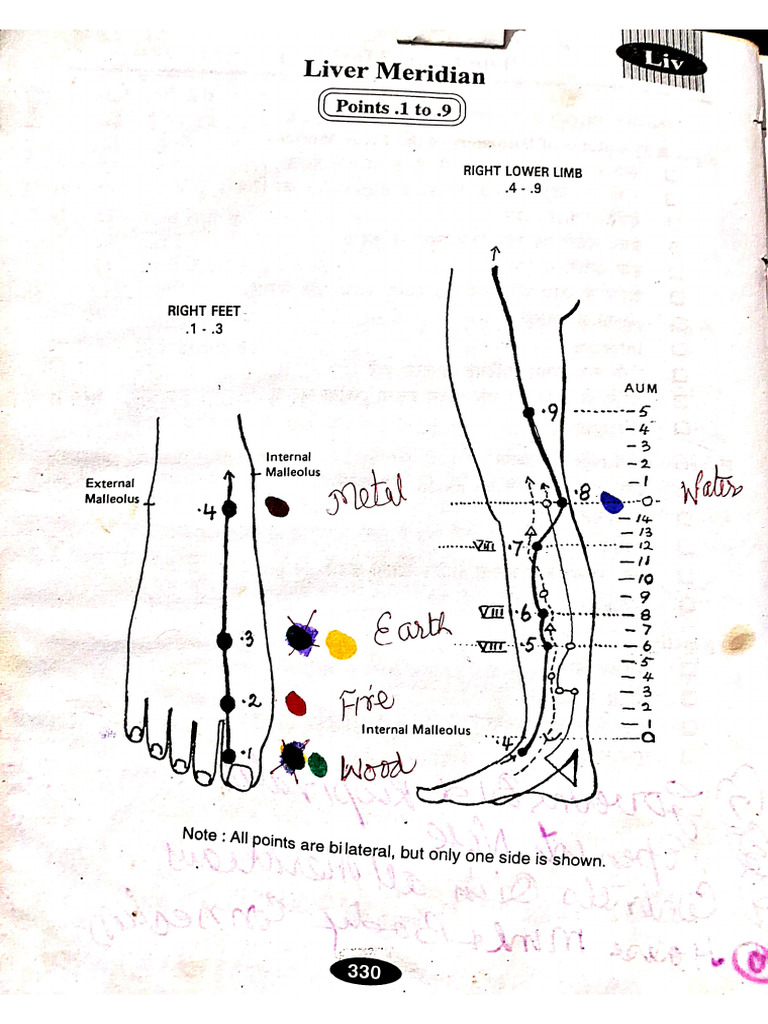 Liv
Liver Meridian
Points .1 to .9
RIGHT LOWER LIMB
.4 - .9
RIGHT FEET
.1 - .3
AUM
.9
5
4
3
2
1
0
14
13
12
11
10
9
8
7
6
5
4
3
2
1
0
Internal
Malleolus
External
Malleolus
.4
Metal
.8
Water
VIII
.7
VIII
.6
VIII
.5
.3
Earth
.2
Fire
Internal Malleolus
.4
.1
Wood
Note : All points are bilateral, but only one side is shown.
330